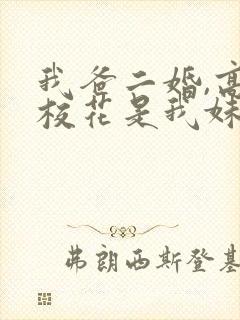 我爸二婚,高
校花是我妹
弗朗西斯登基